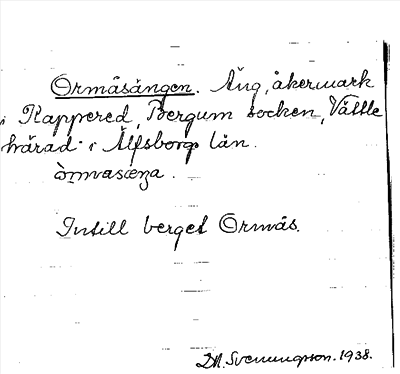 Ormåsängen. Äng, åkermark
i Rappered, Bergum socken, Vättle
härad i Älfsborgs län.
Intill berget Ormås.
Svenungsson. 1938.